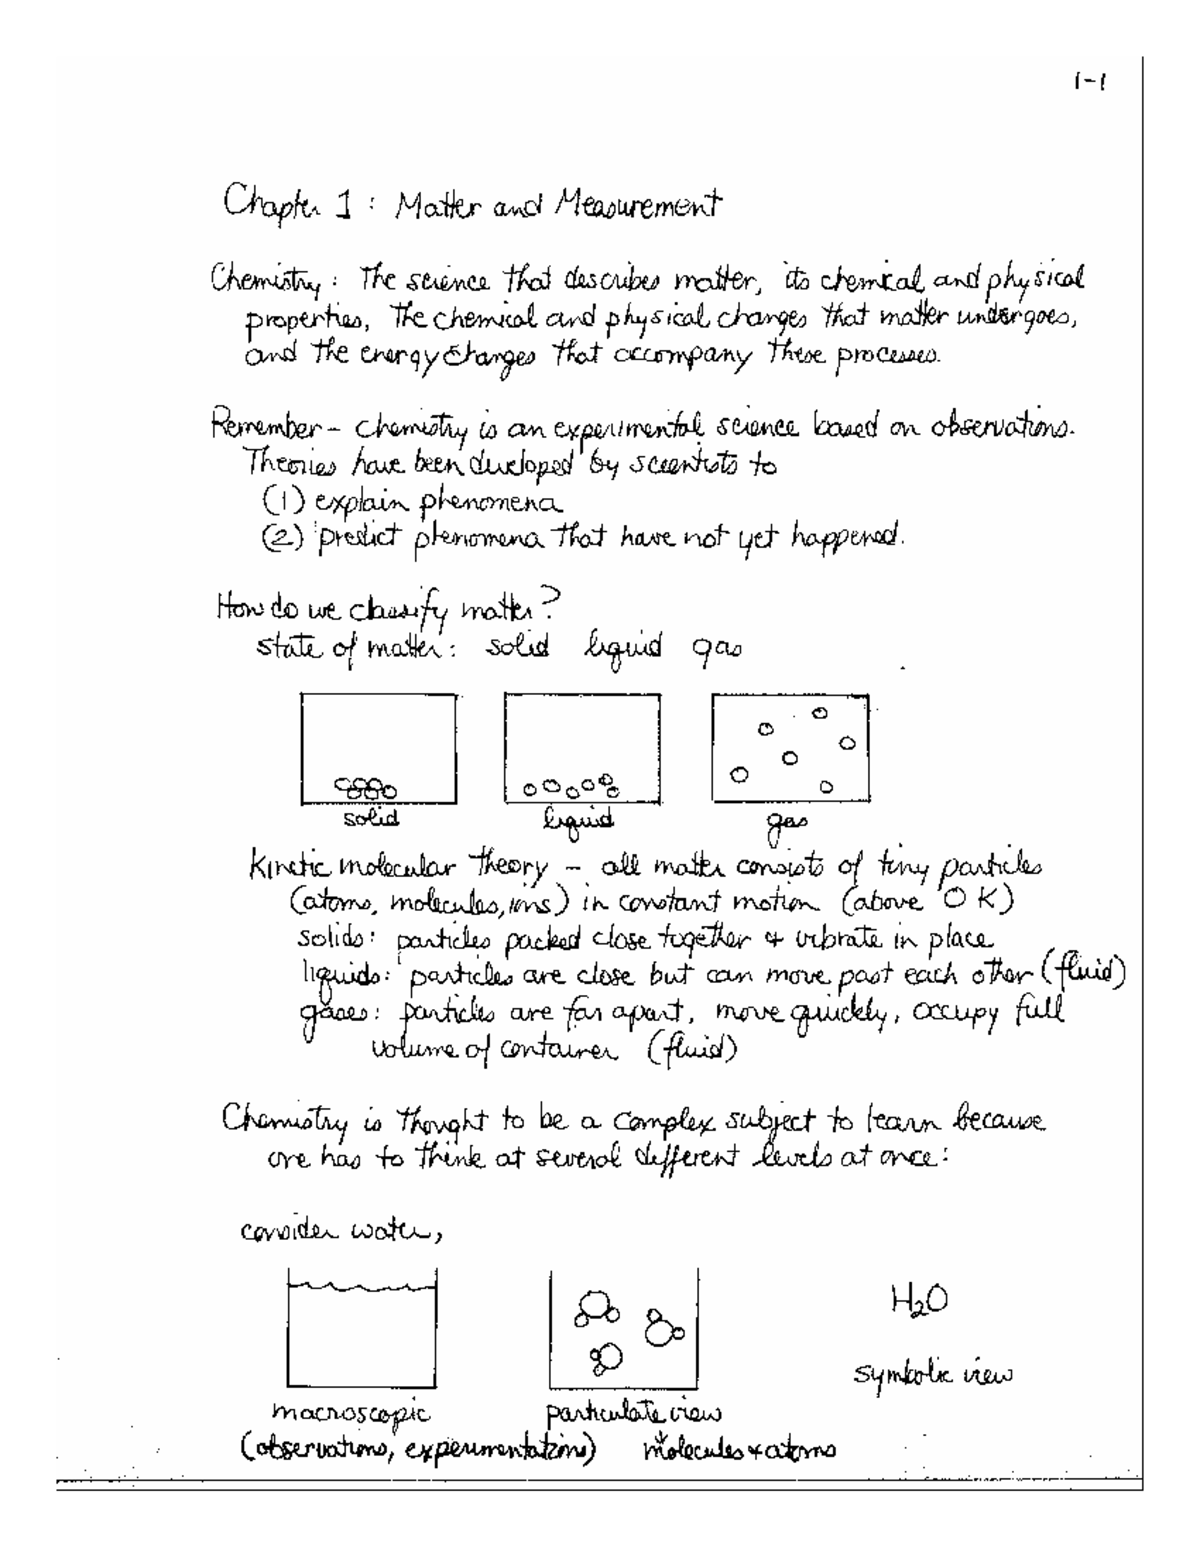 1-1
Chapter 1 : Matter and Measurement
Chemistry : The science that describes matter, its chemical and physical
properties, the chemical and physical changes that matter undergoes,
and the energy changes that accompany these processes.
Remember - chemistry is an experimental science based on observations.
Theories have been developed by scientists to
(1) explain phenomena
(2) predict phenomena that have not yet happened.
How do we classify matter?
state of matter: solid liquid gas
solid liquid gas
Kinetic molecular theory - all matter consists of tiny particles
(atoms, molecules, ions) in constant motion (above 0 K)
solids: particles packed close together & vibrate in place
liquids: particles are close but can move past each other (fluid)
gases: particles are far apart, move quickly, occupy full
volume of container (fluid)
Chemistry is thought to be a complex subject to learn because
one has to think at several different levels at once:
consider water,
H₂O
symbolic view
macroscopic particulate view
(observations, experimentations) molecules & atoms